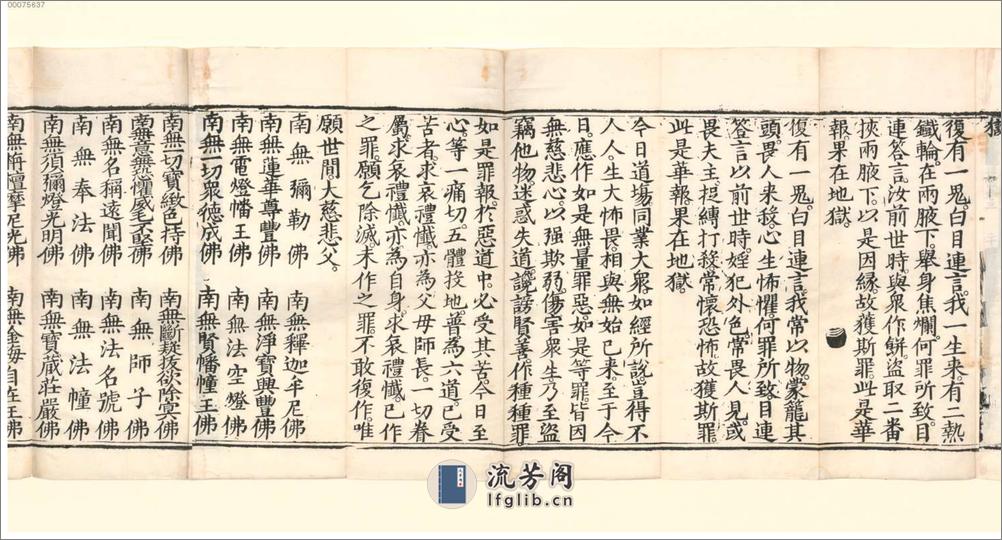 00075637
獄
復有一鬼。白目連言。我一生來。有二熱
鐵輪在兩腋下。舉身焦爛。何罪所致。目
連答言。汝前世時。與衆作餅。盜取二番
挾兩腋下。以是因緣。故獲斯罪。此是華
報。果在地獄。
復有一鬼。白目連言。我常以物蒙籠其
頭。畏人來殺。心生怖懼。何罪所致。目連
答言。以前世時。婬犯外色。常畏人見。或
畏夫主捉縛打殺。常懷恐怖。故獲斯罪
此是華報。果在地獄。
今日道場同業大衆。如經所說。豈得不
人人生大怖畏。相與無始已來。至于今
日。應作如是無量罪惡。如是等罪。皆因
無慈悲心。以强欺弱。傷害衆生。乃至盜
竊他物。迷惑失道。讒謗賢善。作種種罪
如是罪報。於惡道中。必受其苦。今日至
心。等一痛切。五體投地。普為六道已受
苦者。求哀禮懺。亦為父母師長。一切眷
屬。求哀禮懺。亦為自身。求哀禮懺。已作
之罪。願乞除滅。未作之罪。不敢復作。唯
願世間大慈悲父。
南無彌勒佛 南無釋迦牟尼佛
南無蓮華尊豐佛 南無淨寶興豐佛
南無電燈幡王佛 南無法空燈佛
南無一切衆德成佛 南無賢幡幢王佛
南無一切寶緻色持佛 南無斷疑拔欲除冥佛
南無意無恐懼威毛不竪佛 南無師子佛
南無名稱遠聞佛 南無法名號佛
南無奉法佛 南無法幢佛
南無須彌燈光明佛 南無寶藏莊嚴佛
南無栴檀摩尼光佛 南無金海自在王佛
流芳阁
lfglib.cn